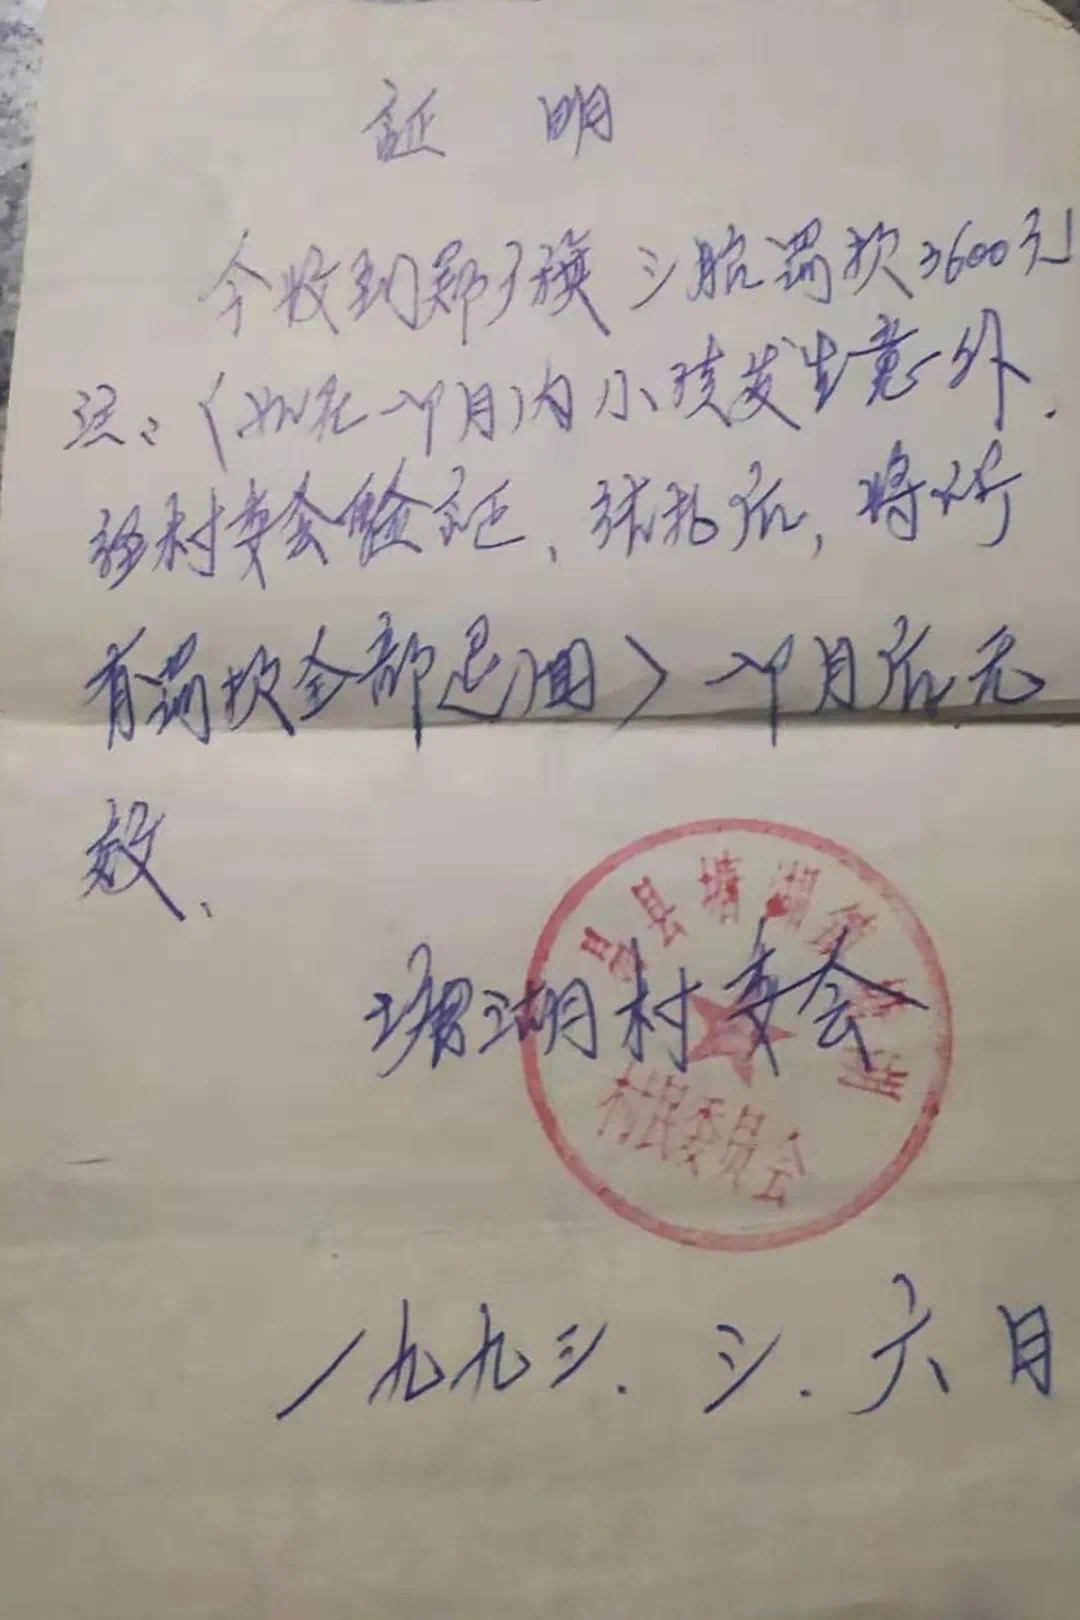 証 明
今收到郑子旗三胎罚款3600元
注:(如在一个月)内小孩发生意外.
经村委会验証、结扎后,将所
有罚款全部退回)一个月后无
效.
塘湖村委会
县塘湖镇
村民委员会
一九九三.三.六月